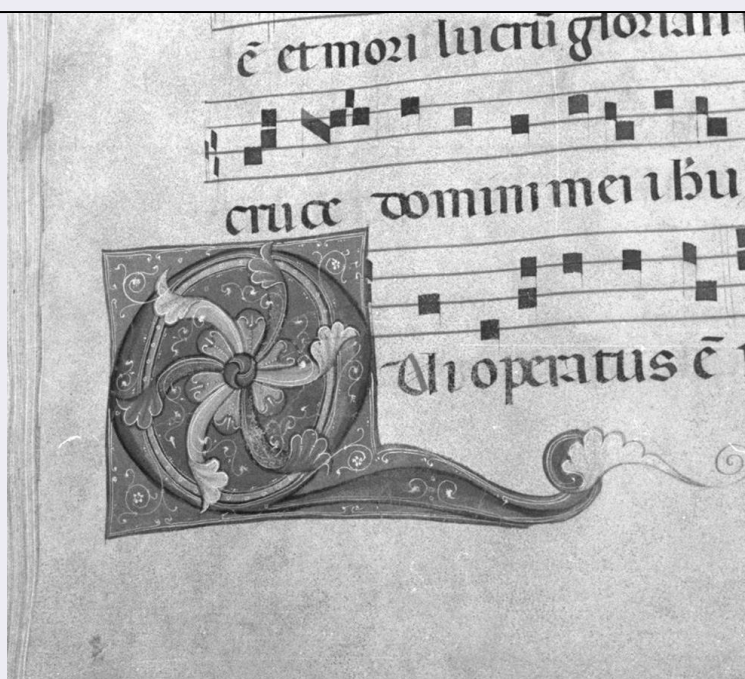 ē et mori lucrū gloriari
cruce domini mei ihu
QUi operatus ē